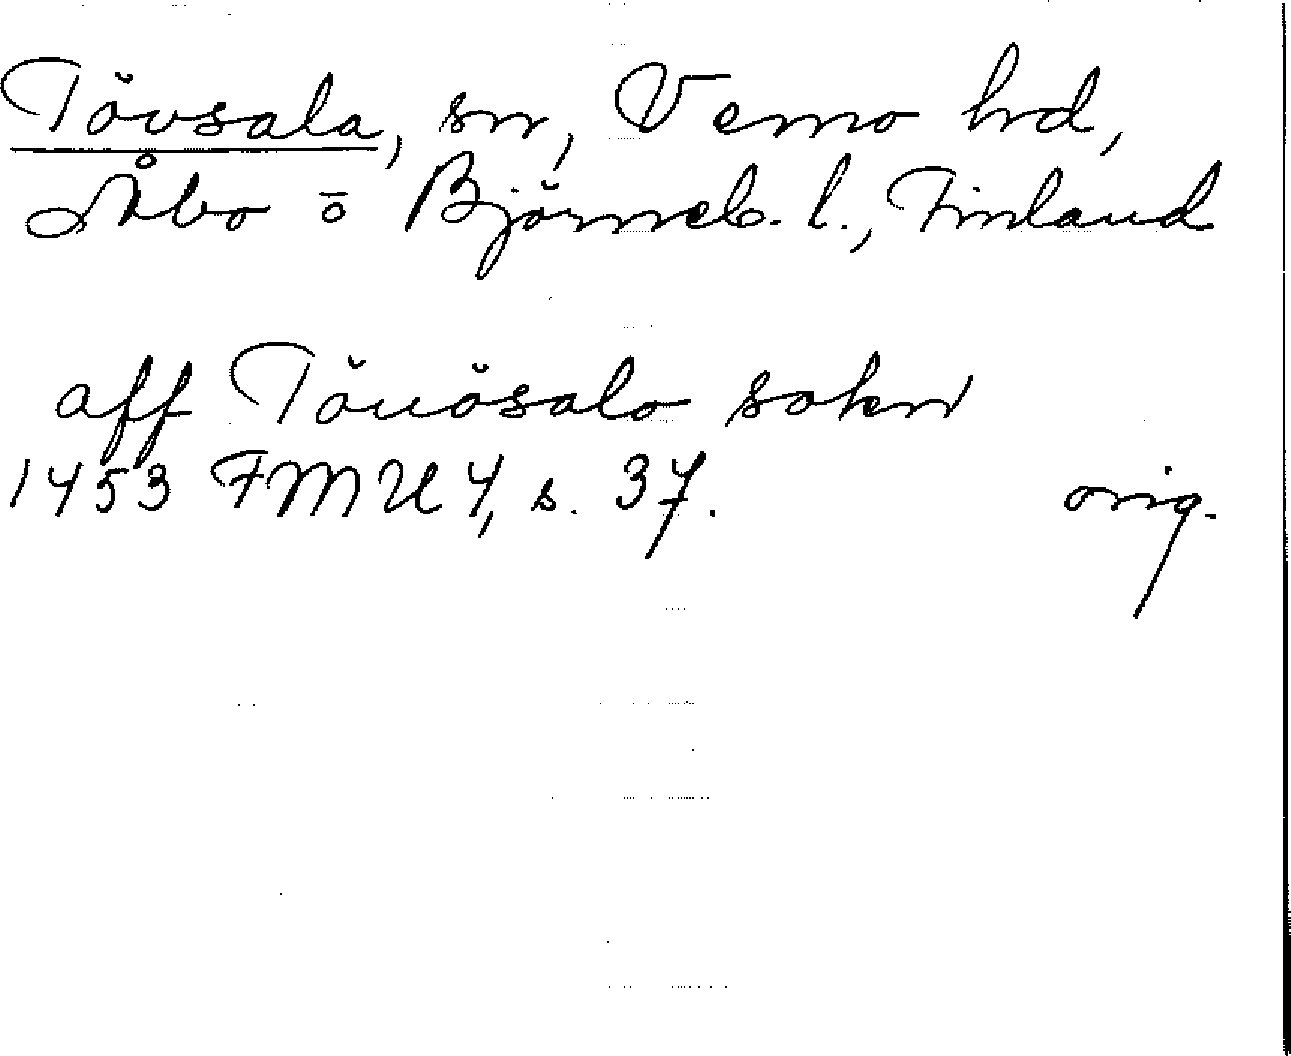 Tövsala, sn, Vemo hd,
Åbo o Björneb. l., Finland
aff Töuösalo sokn
1453 FMU 4, s. 37. orig.